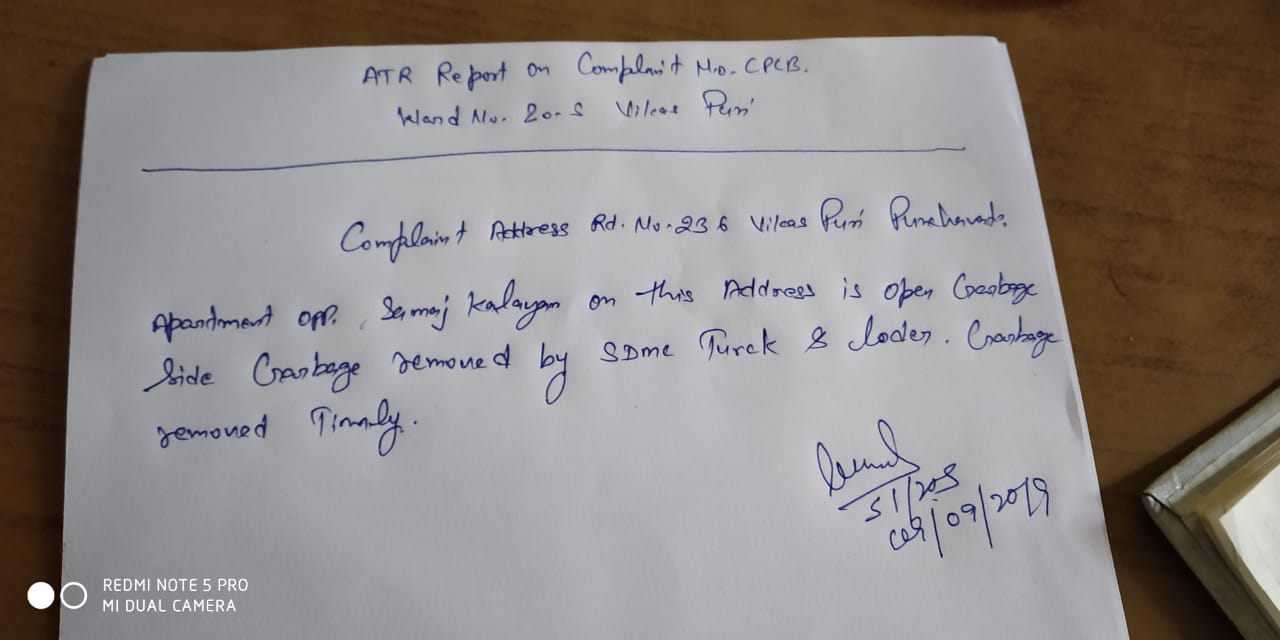 ATR Report on Complaint No. CPCB.
Ward No. 20-S Vikas Puri
Complaint Address Rd. No. 236 Vikas Puri
Apartment opp. Samaj Kalayan on this Address is open Garbage
Side Garbage removed by SDMC Turck & loder. Garbage
removed Timmly.
SI/20S
/09/2019
REDMI NOTE 5 PRO
MI DUAL CAMERA